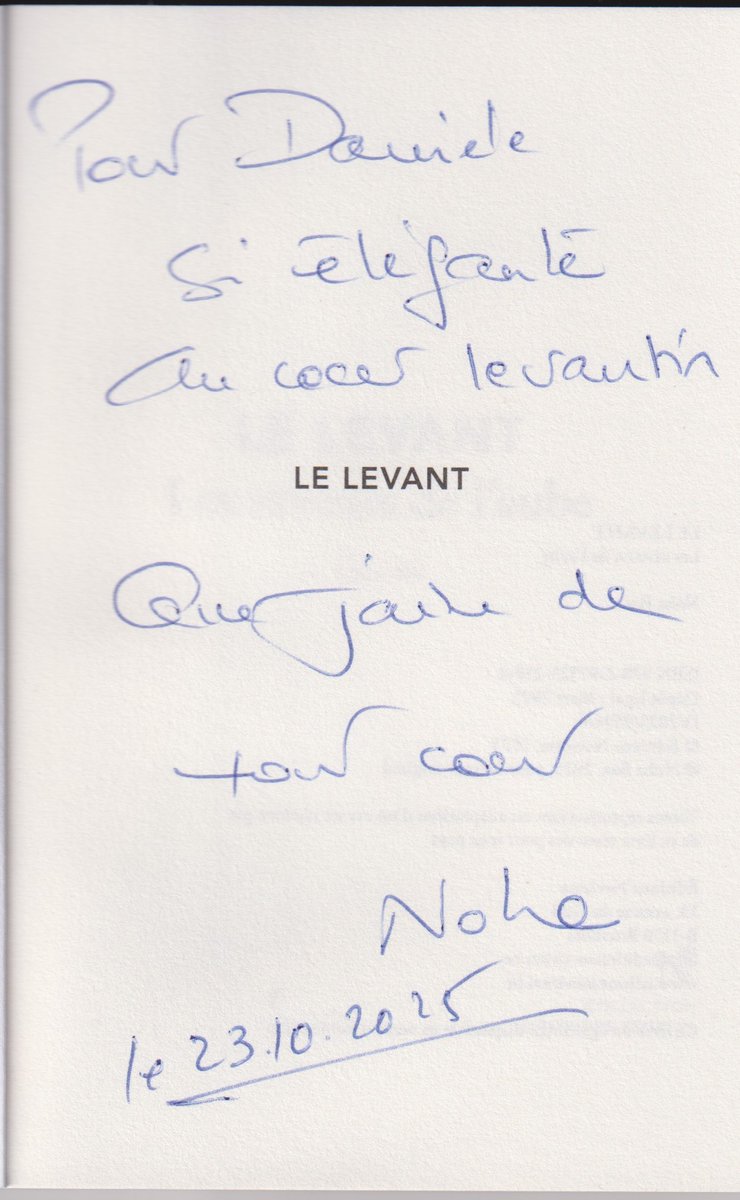 Pour Daniele
Si élégante
Au coeur levantin
LE LEVANT
Que j'aime de
tout coeur
Noha
le 23.10.2025